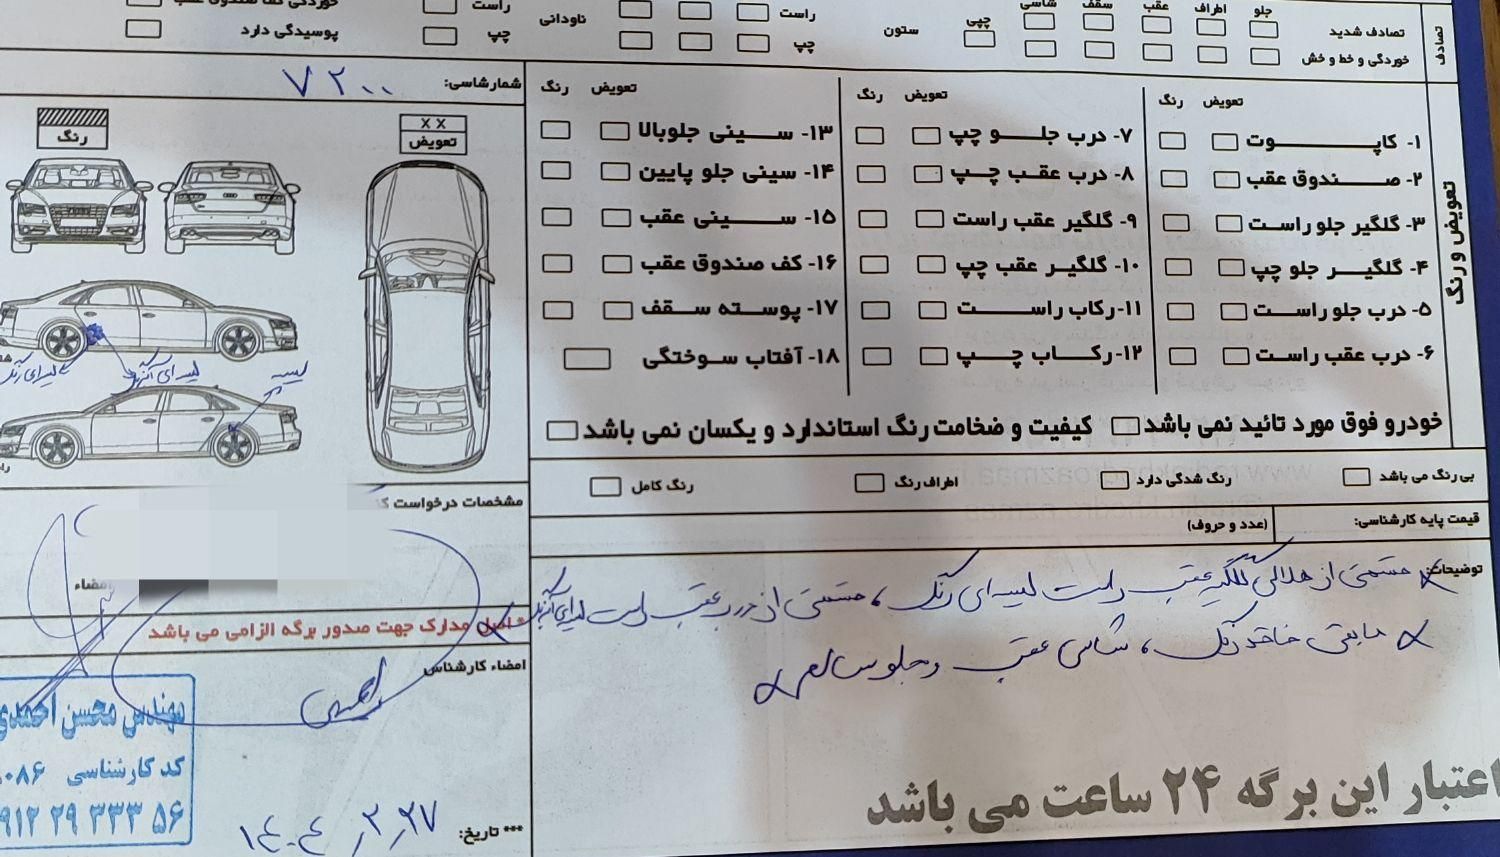 جلو اطراف عقب سقف شاسی
تصادف
تصادف شدید
خوردگی و خط و خش
ستون
چپی
راست
چپ
ناودانی
راست
چپ
پوسیدگی دارد
تعویض و رنگ
تعویض رنگ
۱- کاپوت
۲- صندوق عقب
۳- گلگیر جلو راست
۴- گلگیر جلو چپ
۵- درب جلو راست
۶- درب عقب راست
تعویض رنگ
۷- درب جلو چپ
۸- درب عقب چپ
۹- گلگیر عقب راست
۱۰- گلگیر عقب چپ
۱۱- رکاب راست
۱۲- رکاب چپ
تعویض رنگ
۱۳- سینی جلوبالا
۱۴- سینی جلو پایین
۱۵- سینی عقب
۱۶- کف صندوق عقب
۱۷- پوسته سقف
۱۸- آفتاب سوختگی
خودرو فوق مورد تائید نمی باشد
کیفیت و ضخامت رنگ استاندارد و یکسان نمی باشد
بی رنگ می باشد
رنگ شدگی دارد
اطراف رنگ
رنگ کامل
قیمت پایه کارشناسی:
(عدد و حروف)
توضیحات:
قسمتی از هلالی گلگیر عقب راست لیسه‌ای رنگ، قسمتی از درب عقب راست لیسه‌ای
مابقی فاقد رنگ، شاسی عقب و جلو سالم
اعتبار این برگه ۲۴ ساعت می باشد
شمارشاسی: ۷۲۰۰
رنگ
X X
تعویض
لیسه‌ای رنگ
لیسه‌ای
لیسه
مشخصات درخواست
امضاء
* اصل مدارک جهت صدور برگه الزامی می باشد
امضاء کارشناس
مهندس محسن احمدی
کد کارشناسی ۰۸۶
۹۱۲ ۲۹ ۳۳۳ ۵۶
*** تاریخ: ۱۴۰۴,۲,۲۷